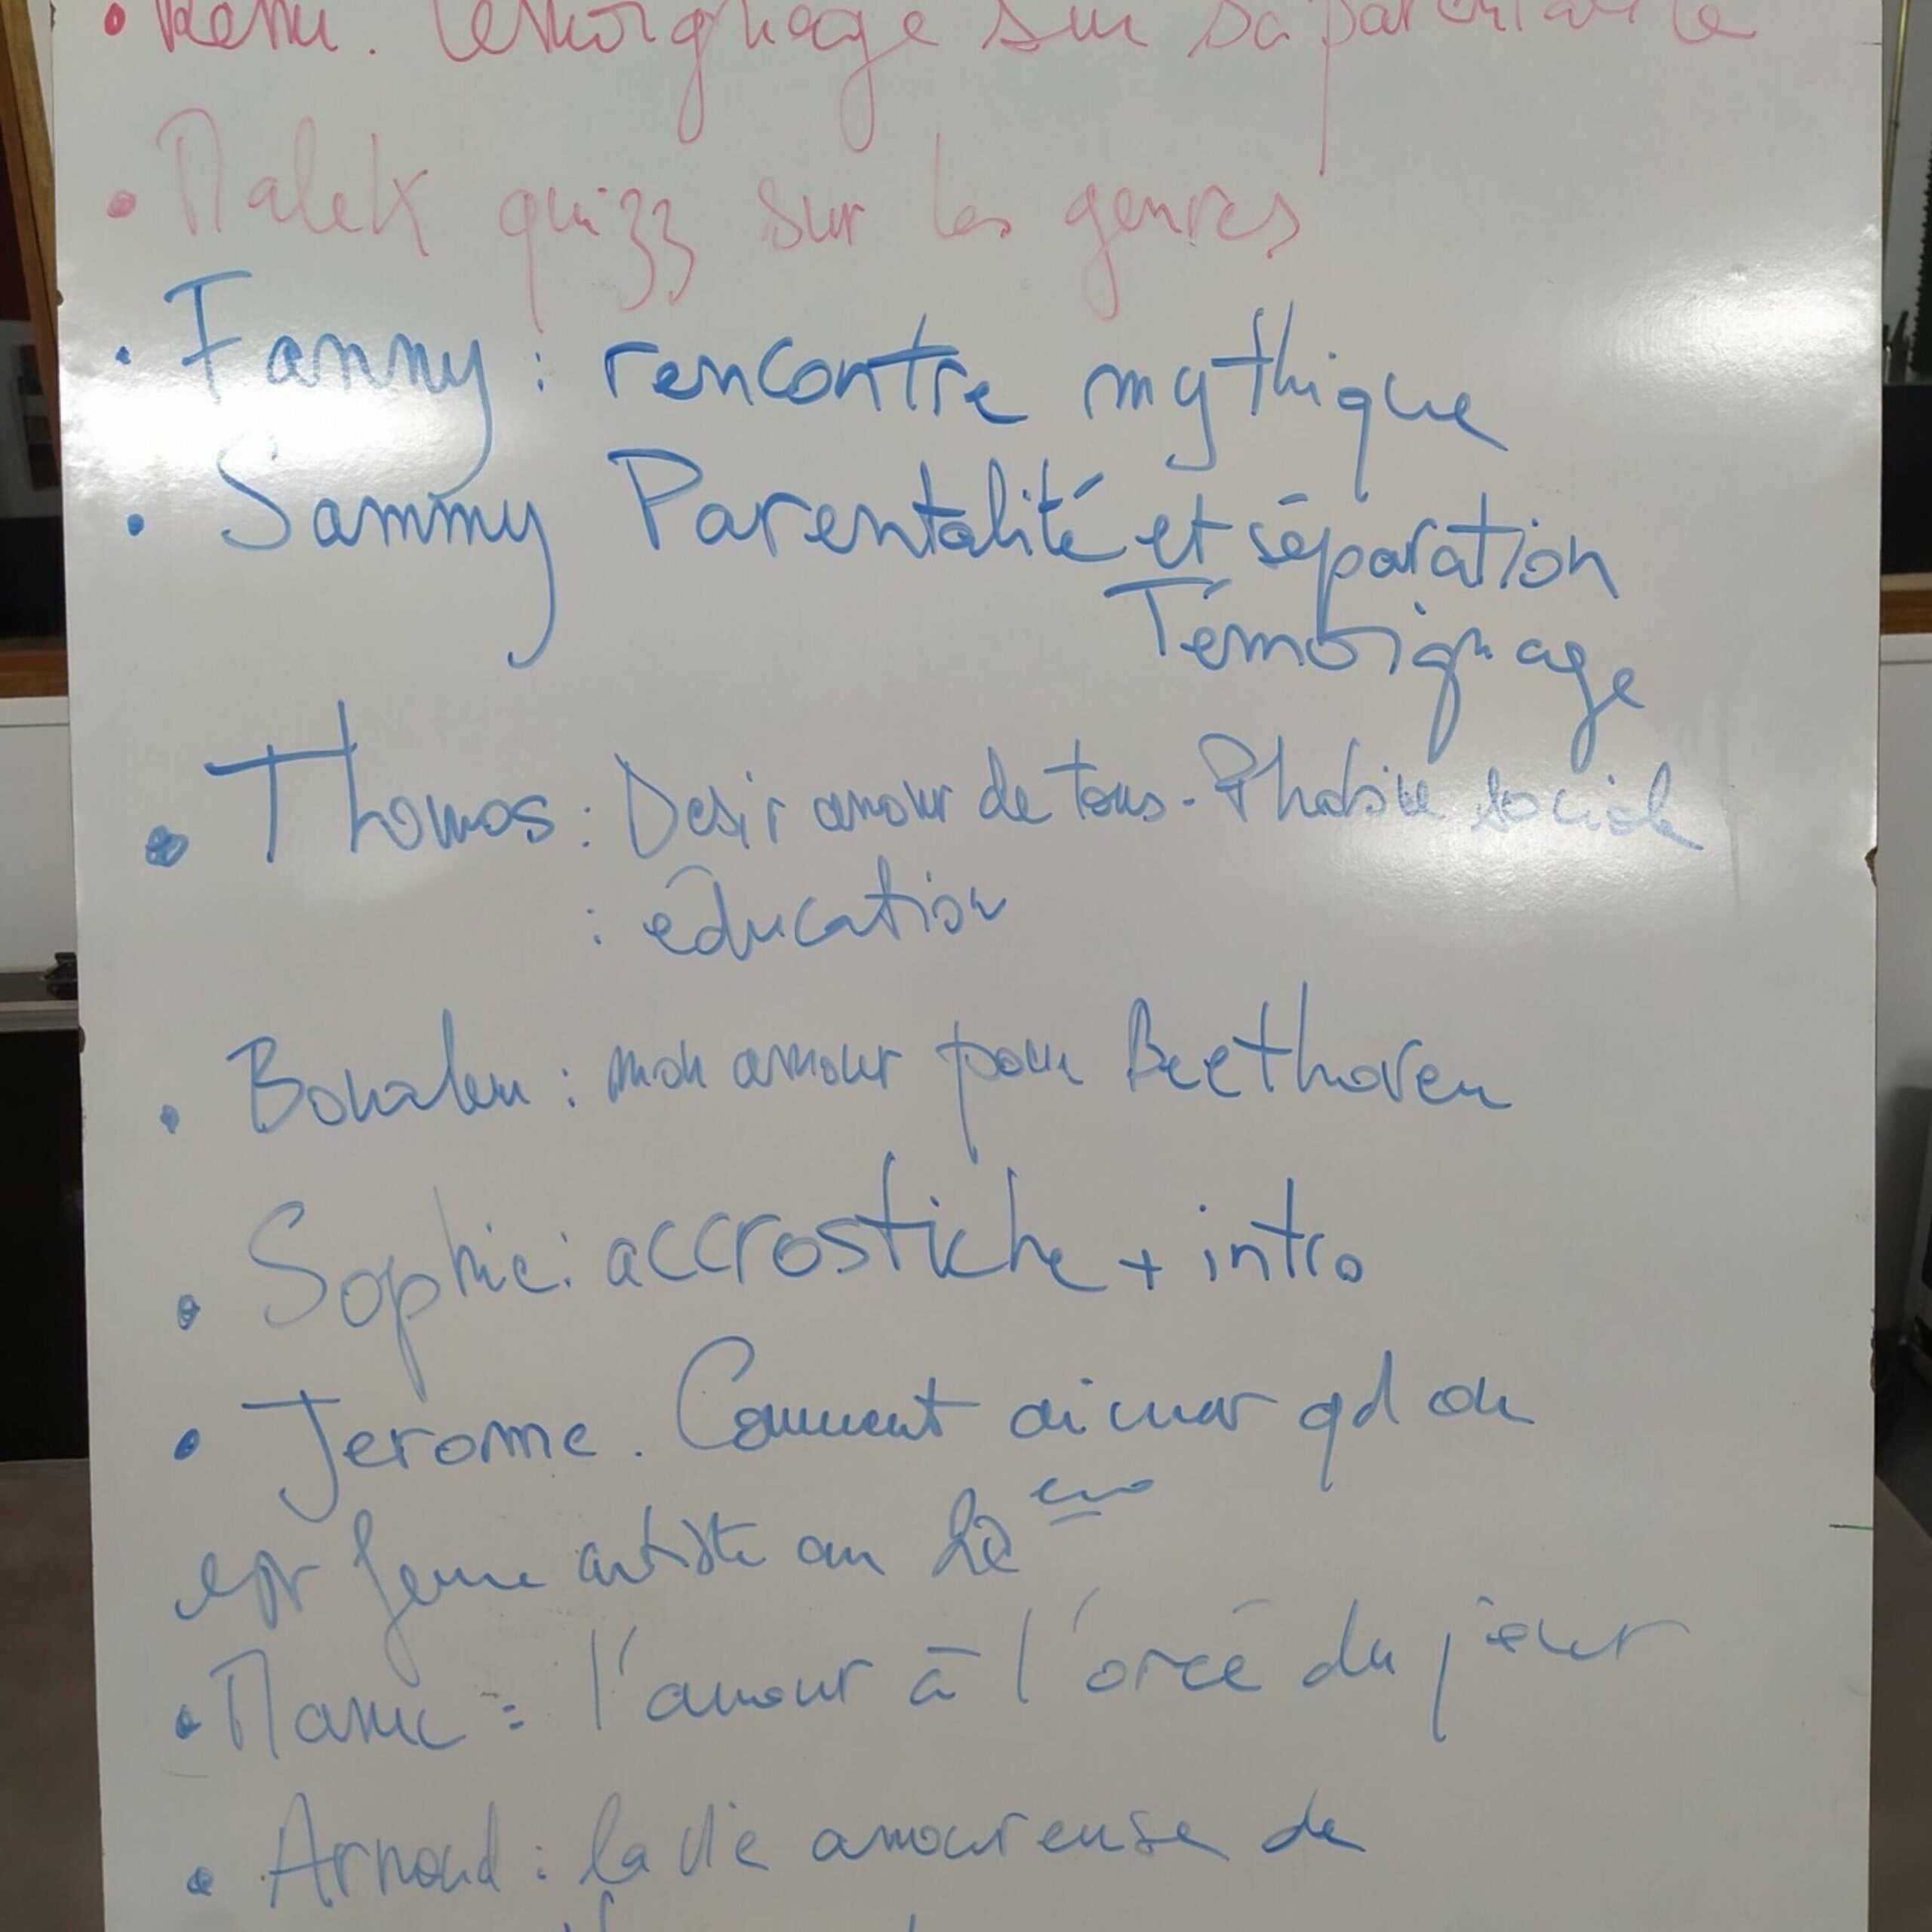 • témoignage sur sa parentalité
• Malek quizz sur les genres
• Fanny : rencontre mythique
• Sammy Parentalité et séparation
Témoignage
• Thomas : Desir amour de tous - Phobie sociale
: éducation
• : mon amour pour Beethoven
• Sophie : accrostiche + intro
• Jerome . Comment aimer qd on
est femme artiste au 20 eme
• = l'amour à l'orée du jour
• Arnaud : la vie amoureuse de